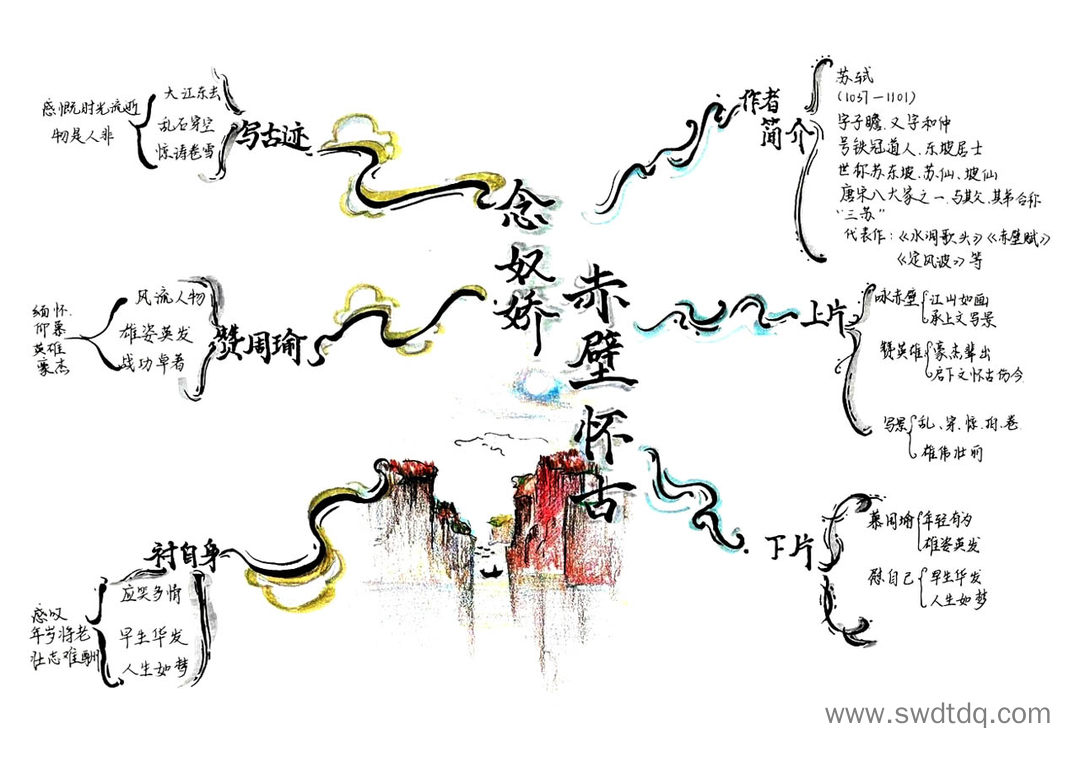 念奴娇
赤壁怀古
写古迹
大江东去
乱石穿空
惊涛卷雪
感慨时光流逝
物是人非
赞周瑜
风流人物
雄姿英发
战功卓著
缅怀、
仰慕
英雄
豪杰
衬自身
应笑多情
早生华发
人生如梦
感叹
年岁将老
壮志难酬
作者
简介
苏轼
(1037—1101)
字子瞻、又字和仲
号铁冠道人、东坡居士
世称苏东坡、苏仙、坡仙
唐宋八大家之一、与其父、其弟合称
“三苏”
代表作：《水调歌头》《赤壁赋》
《定风波》等
上片
咏赤壁
江山如画
承上文写景
赞英雄
豪杰辈出
启下文怀古伤今
写景
乱、穿、惊、拍、卷
雄伟壮丽
下片
慕周瑜
年轻有为
雄姿英发
愁自己
早生华发
人生如梦
www.swdtdq.com